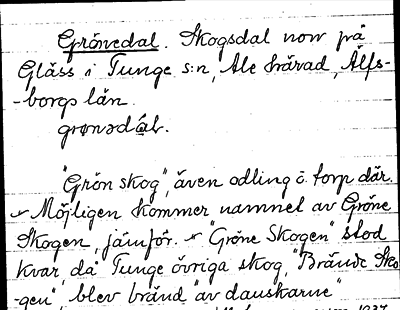 Grönedal. Skogsdal norr på
Gläss i Tunge s:n, Ale härad, Älfs-
-borgs län.
grønədál.
"Grön skog", även odling o. torp där.
Möjligen kommer namnet av Gröne
Skogen, jämför. "Gröne Skogen" stod
kvar, då Tunge övriga skog, "Brände Sko-
-gen", blev bränd "av danskarne"